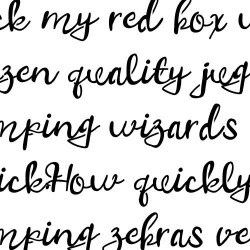 ck my red box w
zen quality jug
mping wizards
ick.How quickly
mping zebras ve